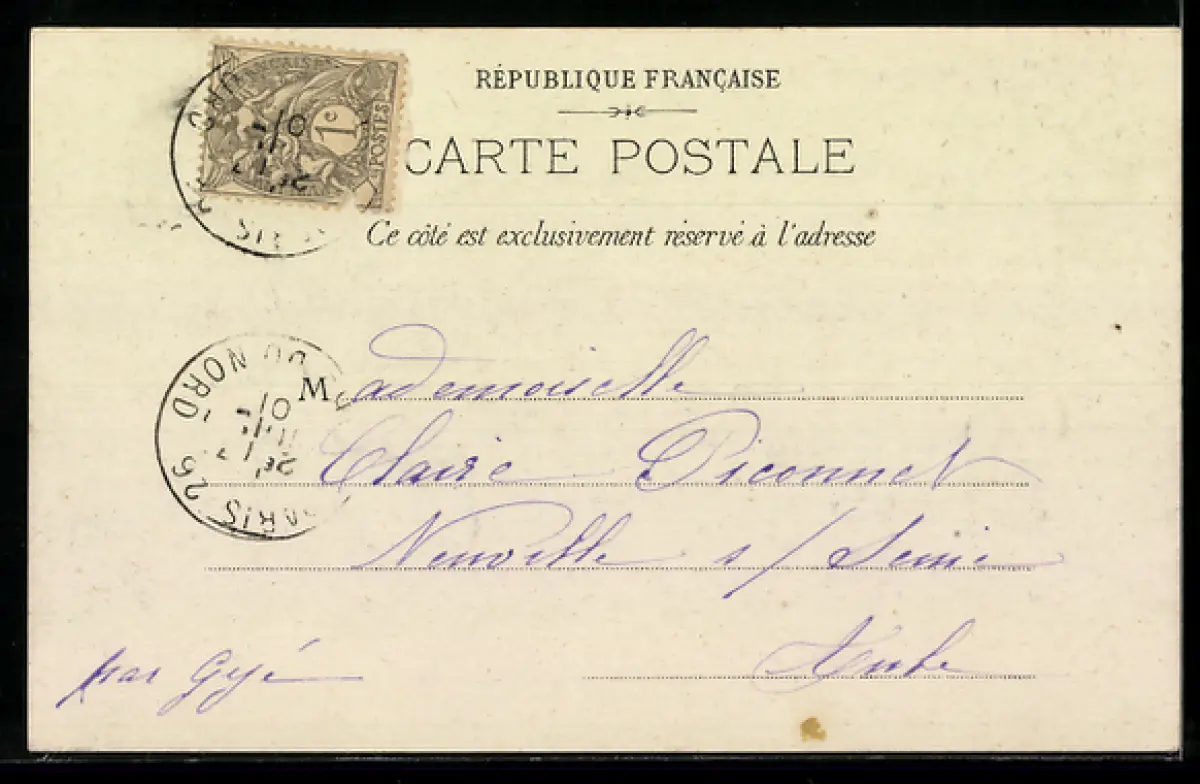 RÉPUBLIQUE FRANÇAISE
CARTE POSTALE
Ce côté est exclusivement réservé à l'adresse
1c
POSTES
PARIS 26
DU NORD
01
Mademoiselle
Claire Piconnet
Neuville s/ Seine
Aube
par Gyé